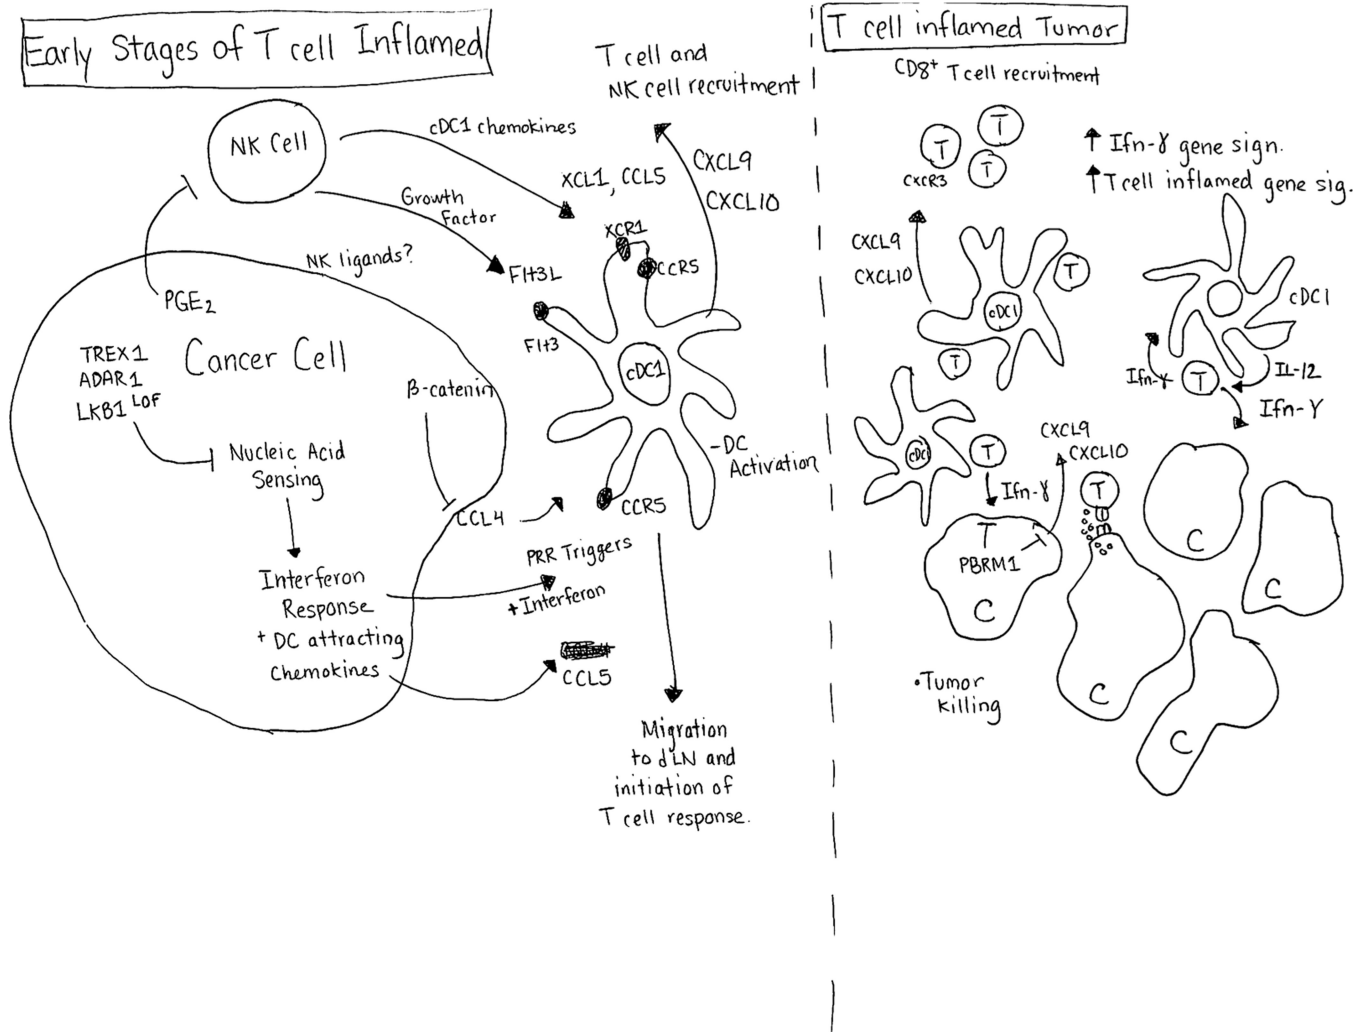 Early Stages of T cell Inflamed
T cell and
NK cell recruitment
NK Cell
cDC1 chemokines
XCL1, CCL5
CXCL9
CXCL10
Growth
Factor
NK ligands?
Flt3L
XCR1
CCR5
Flt3
PGE2
TREX1
ADAR1
LKB1 LOF
Cancer Cell
β-catenin
cDC1
-DC
Activation
Nucleic Acid
Sensing
CCL4
CCR5
PRR Triggers
+ Interferon
Interferon
Response
+ DC attracting
Chemokines
CCL5
Migration
to dLN and
initiation of
T cell response.
T cell inflamed Tumor
CD8+ T cell recruitment
T
T
T
CXCR3
Ifn-γ gene sign.
T cell inflamed gene sig.
CXCL9
CXCL10
cDC1
T
T
cDC1
Ifn-γ
T
IL-12
Ifn-γ
cDC
T
Ifn-γ
CXCL9
CXCL10
T
PBRM1
C
C
C
C
C
•Tumor
killing